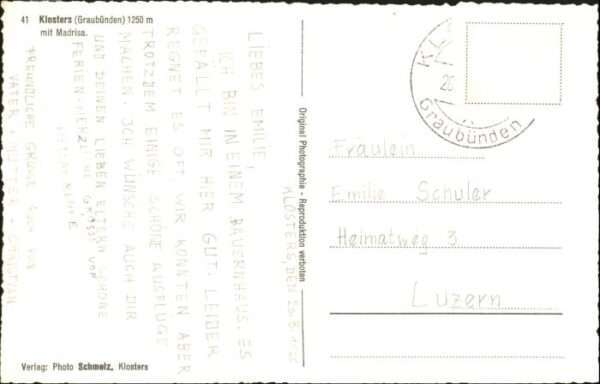 41 Klosters (Graubünden) 1250 m
mit Madrisa.
KLOSTERS, DEN
LIEBES EMILIE,
ICH BIN IN EINEM BAUERNHAUS. ES
GEFÄLLT MIR HIER GUT. LEIDER
REGNET ES OFT. WIR KONNTEN ABER
TROTZDEM EINIGE SCHÖNE AUSFLÜGE
MACHEN. ICH WÜNSCHE AUCH DIR
UND DEINEN LIEBEN ELTERN SCHÖNE
FERIEN. HERZL. GRÜSST
FREUNDLICHE GRÜSSE
VATER, MUTTER +
Verlag: Photo Schmelz, Klosters
Original Photographie - Reproduktion verboten
Graubünden
20
Fräulein
Emilie Schuler
Heimatweg 3
Luzern